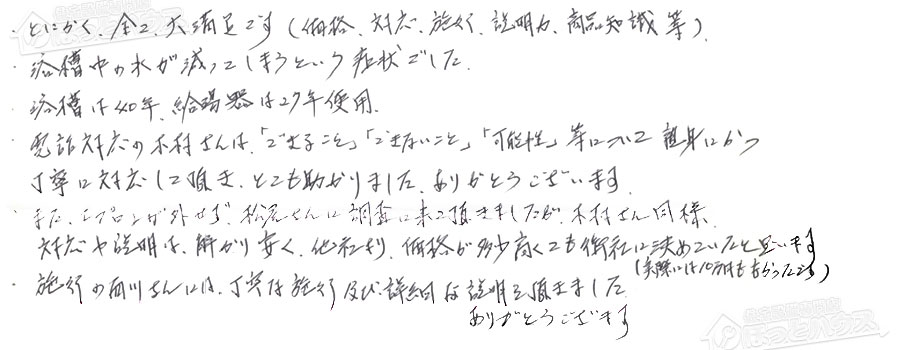 ・とにかく、全て、大満足です（価格、対応、施行、説明力、商品知識等）
・浴槽中の水が減ってしまうという症状でした。
・浴槽は40年、給湯器は27年使用。
・電話対応の木村さんは、「できること」「できないこと」「可能性」等について親身にかつ
丁寧に対応して頂き、とても助かりました、ありがとうございます。
・また、エプロンが外せず、松尾さんに調査に来て頂きましたが、木村さん同様、
対応や説明は、解かり安く、他社より、価格が多少高くても御社に決めていたと思います
（実際には10万円も安かったです）
・施行の西川さんには、丁寧な施行及び詳細な説明を頂きました
ありがとうございます
ほっとハウス